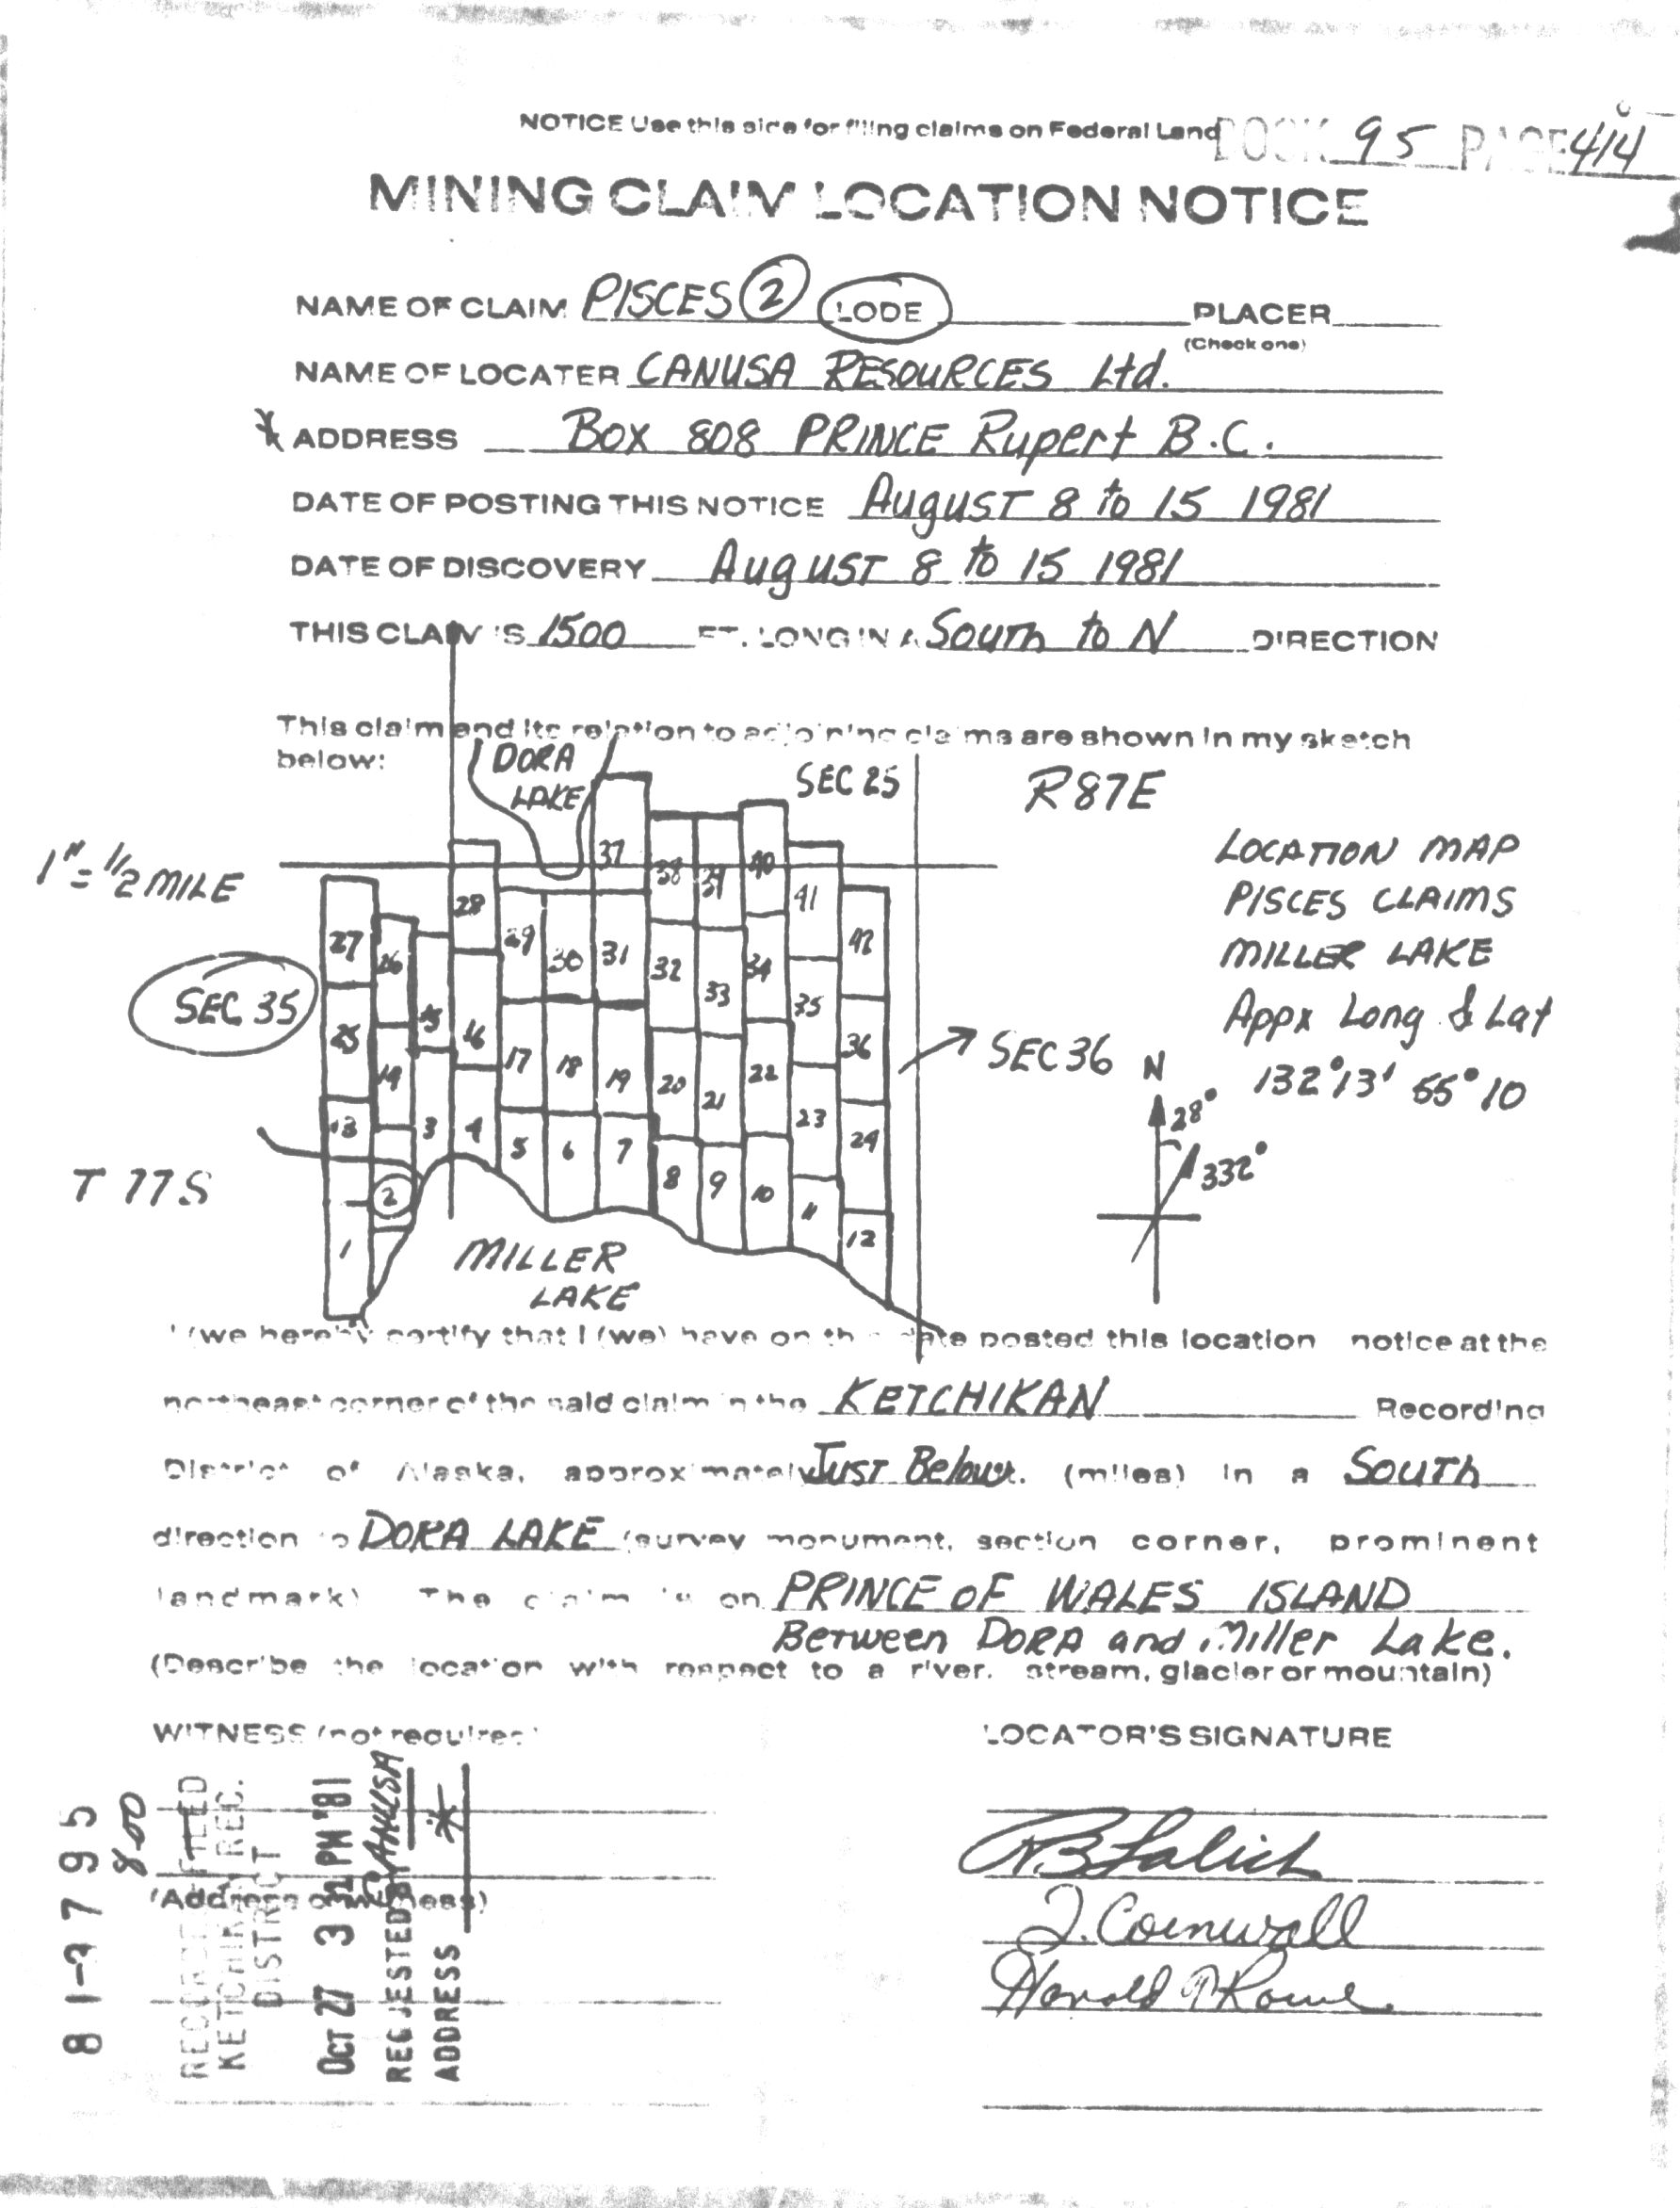 NOTICE Use this side for filing claims on Federal Land
BOOK 95 PAGE 414
MINING CLAIM LOCATION NOTICE
NAME OF CLAIM PISCES 2 LODE PLACER
(Check one)
NAME OF LOCATER CANUSA RESOURCES Ltd.
* ADDRESS Box 808 PRINCE Rupert B.C.
DATE OF POSTING THIS NOTICE August 8 to 15 1981
DATE OF DISCOVERY August 8 to 15 1981
THIS CLAIM IS 1500 FT. LONG IN A South to N DIRECTION
This claim and its relation to adjoining claims are shown in my sketch
below:
DORA
LAKE
SEC 25
R87E
1" = 1/2 MILE
LOCATION MAP
PISCES CLAIMS
MILLER LAKE
Appx Long & Lat
132°13' 55° 10
SEC 35
SEC 36
N
28°
332°
T 77S
37
38 39 40
28 41
27 26 29 30 31 32 33 34 42
25 15 16 35
14 17 18 19 20 21 22 36
13 3 4 23
5 6 7 24
2 8 9 10 11
1 12
MILLER
LAKE
I (we hereby certify that I (we) have on the date posted this location notice at the
northeast corner of the said claim in the KETCHIKAN Recording
District of Alaska, approximately Just Below. (miles) in a South
direction to DORA LAKE (survey monument, section corner, prominent
landmark) The claim is on PRINCE OF WALES ISLAND
Between DORA and Miller Lake.
(Describe the location with respect to a river, stream, glacier or mountain)
WITNESS (not required)
LOCATOR'S SIGNATURE
(Address of witness)
J. Cornwall
Harold
81-3795
8.00
RECORDED FILED
KETCHIKAN REC.
DISTRICT
OCT 27 3 PM '81
REQUESTED BY CANUSA
ADDRESS *